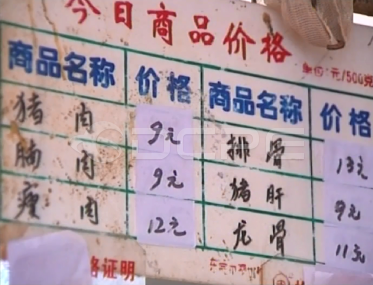 今日商品价格
单位:元/500克
商品名称 价格 商品名称 价格
猪肉 9元 排骨 13元
腩肉 9元 猪肝 9元
瘦肉 12元 龙骨 11元
格证明